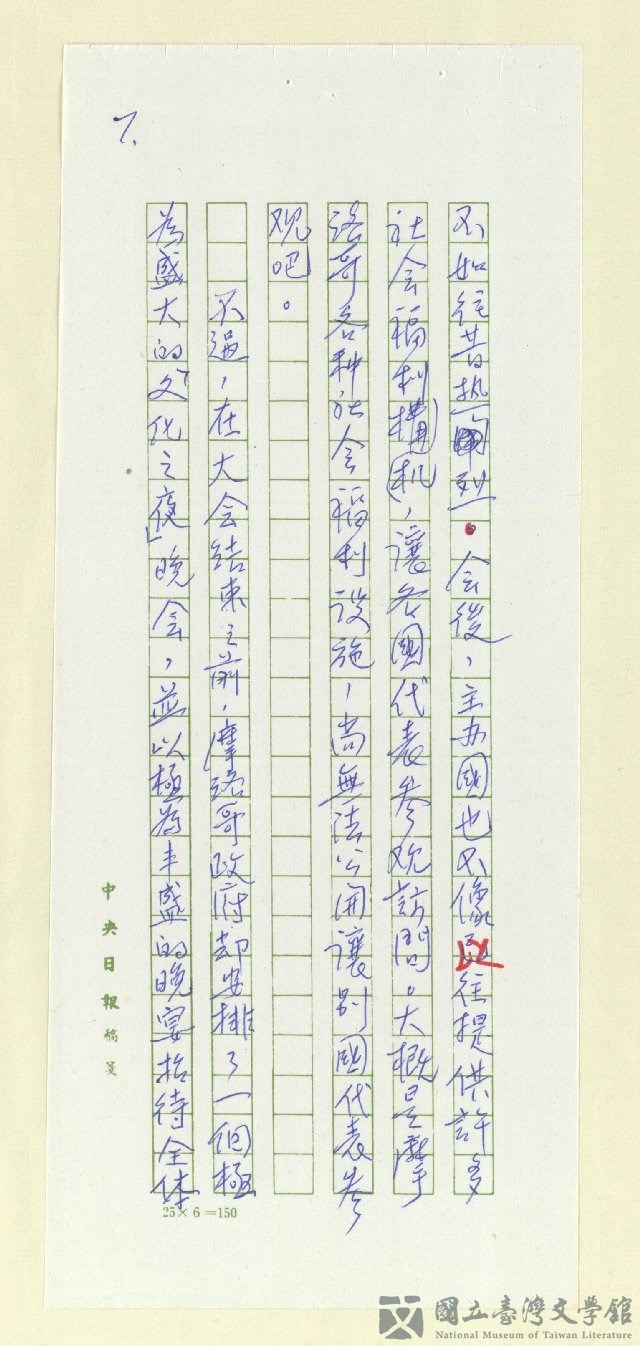 7.
不如往昔执両列。会後，主办國也不像以往提供許多
社会福利機构，讓各國代表参观訪問。大概是摩
洛哥各种社会福利設施，尚無法公開讓別國代表参
观吧。
不過，在大会结束之前，摩洛哥政府却安排了一個極
為盛大的「文化之夜」晚会，並以極為丰盛的晚宴招待全体
中央日報稿箋
25×6=150
國立臺灣文學館
National Museum of Taiwan Literature